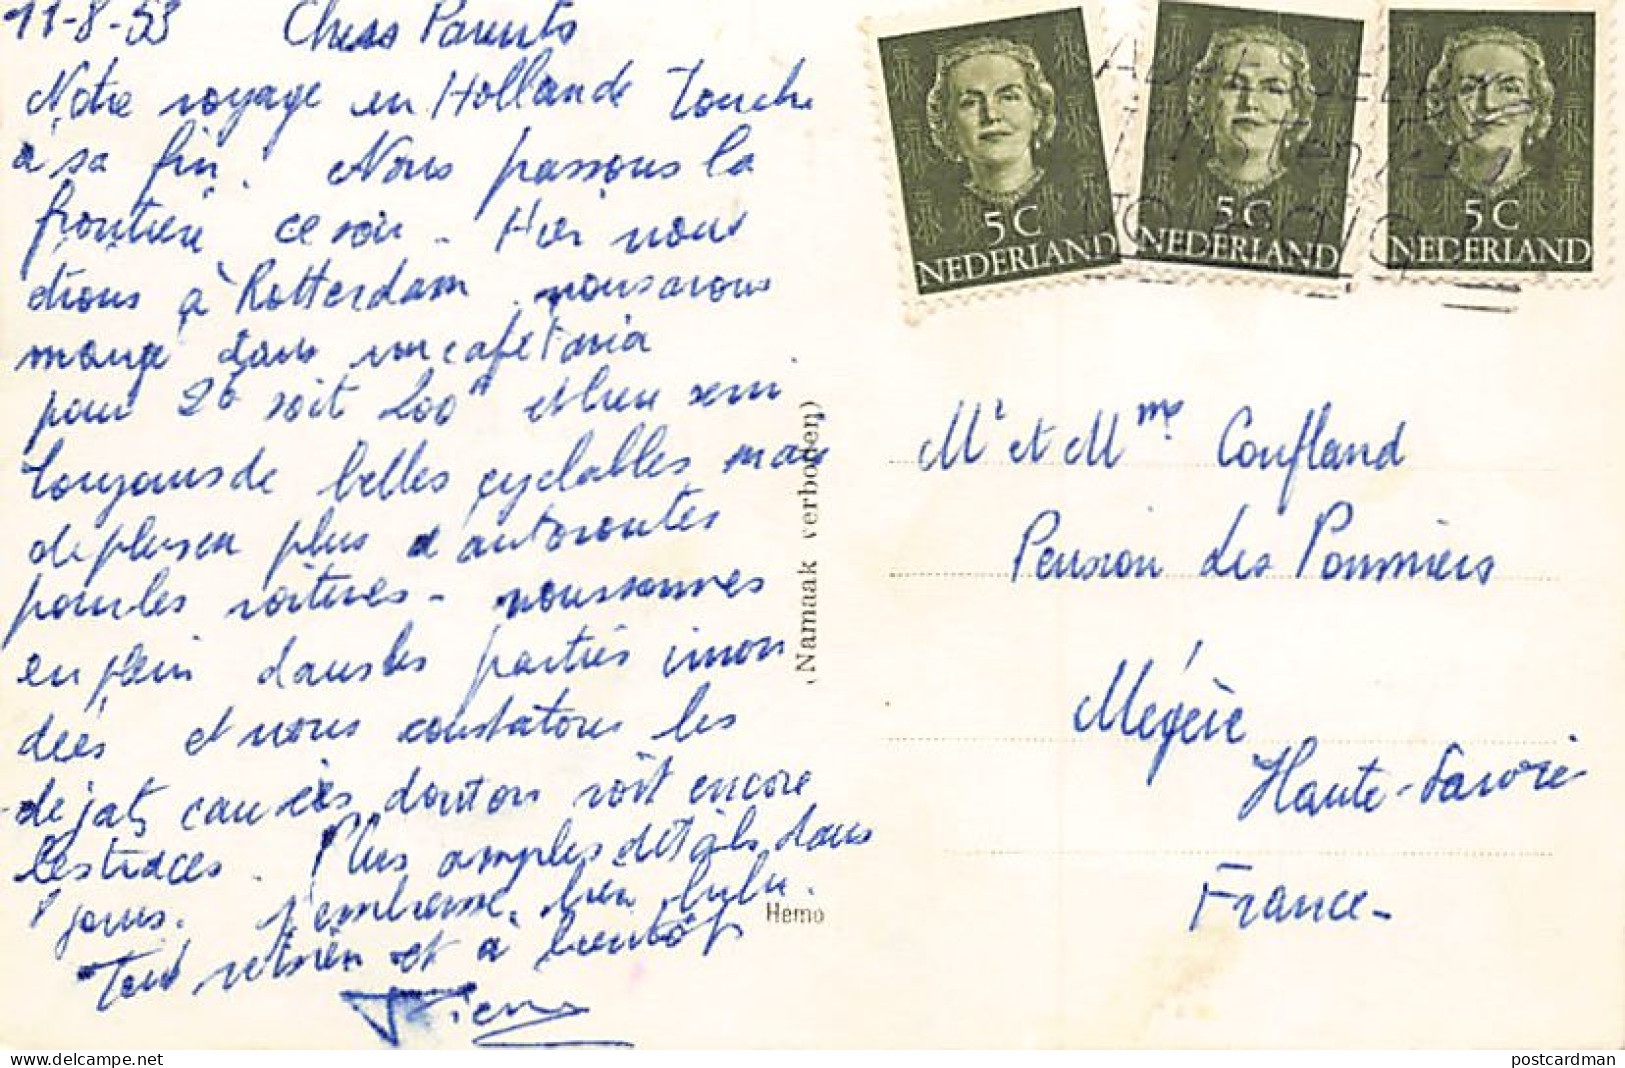 11-8-53 Chers Parents
Notre voyage en Hollande touche
a sa fin. Nous passons la
frontière ce soir - Hier nous
étions à Rotterdam nous avons
mangé dans une cafetaria
pour 2 soit 200 et
toujours de belles cyclables mais
de plus en plus d'autoroutes
pour les voitures - nous sommes
en plein dans les parties inon
dées et nous constatons les
degats causées dont on voit encore
les traces. Plus amples détails dans
jours. J'embrasse bien lulu.
Tout votre et à bientôt
Pierre
(Namaak verboden)
Hemo
5C
NEDERLAND
5C
NEDERLAND
5C
NEDERLAND
Mr et Mme Coufland
Pension des Pommiers
Mégève
Haute-Savoie
France-
delcampe.net
postcardman